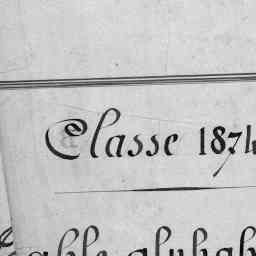 Classe 1874
Table alphab